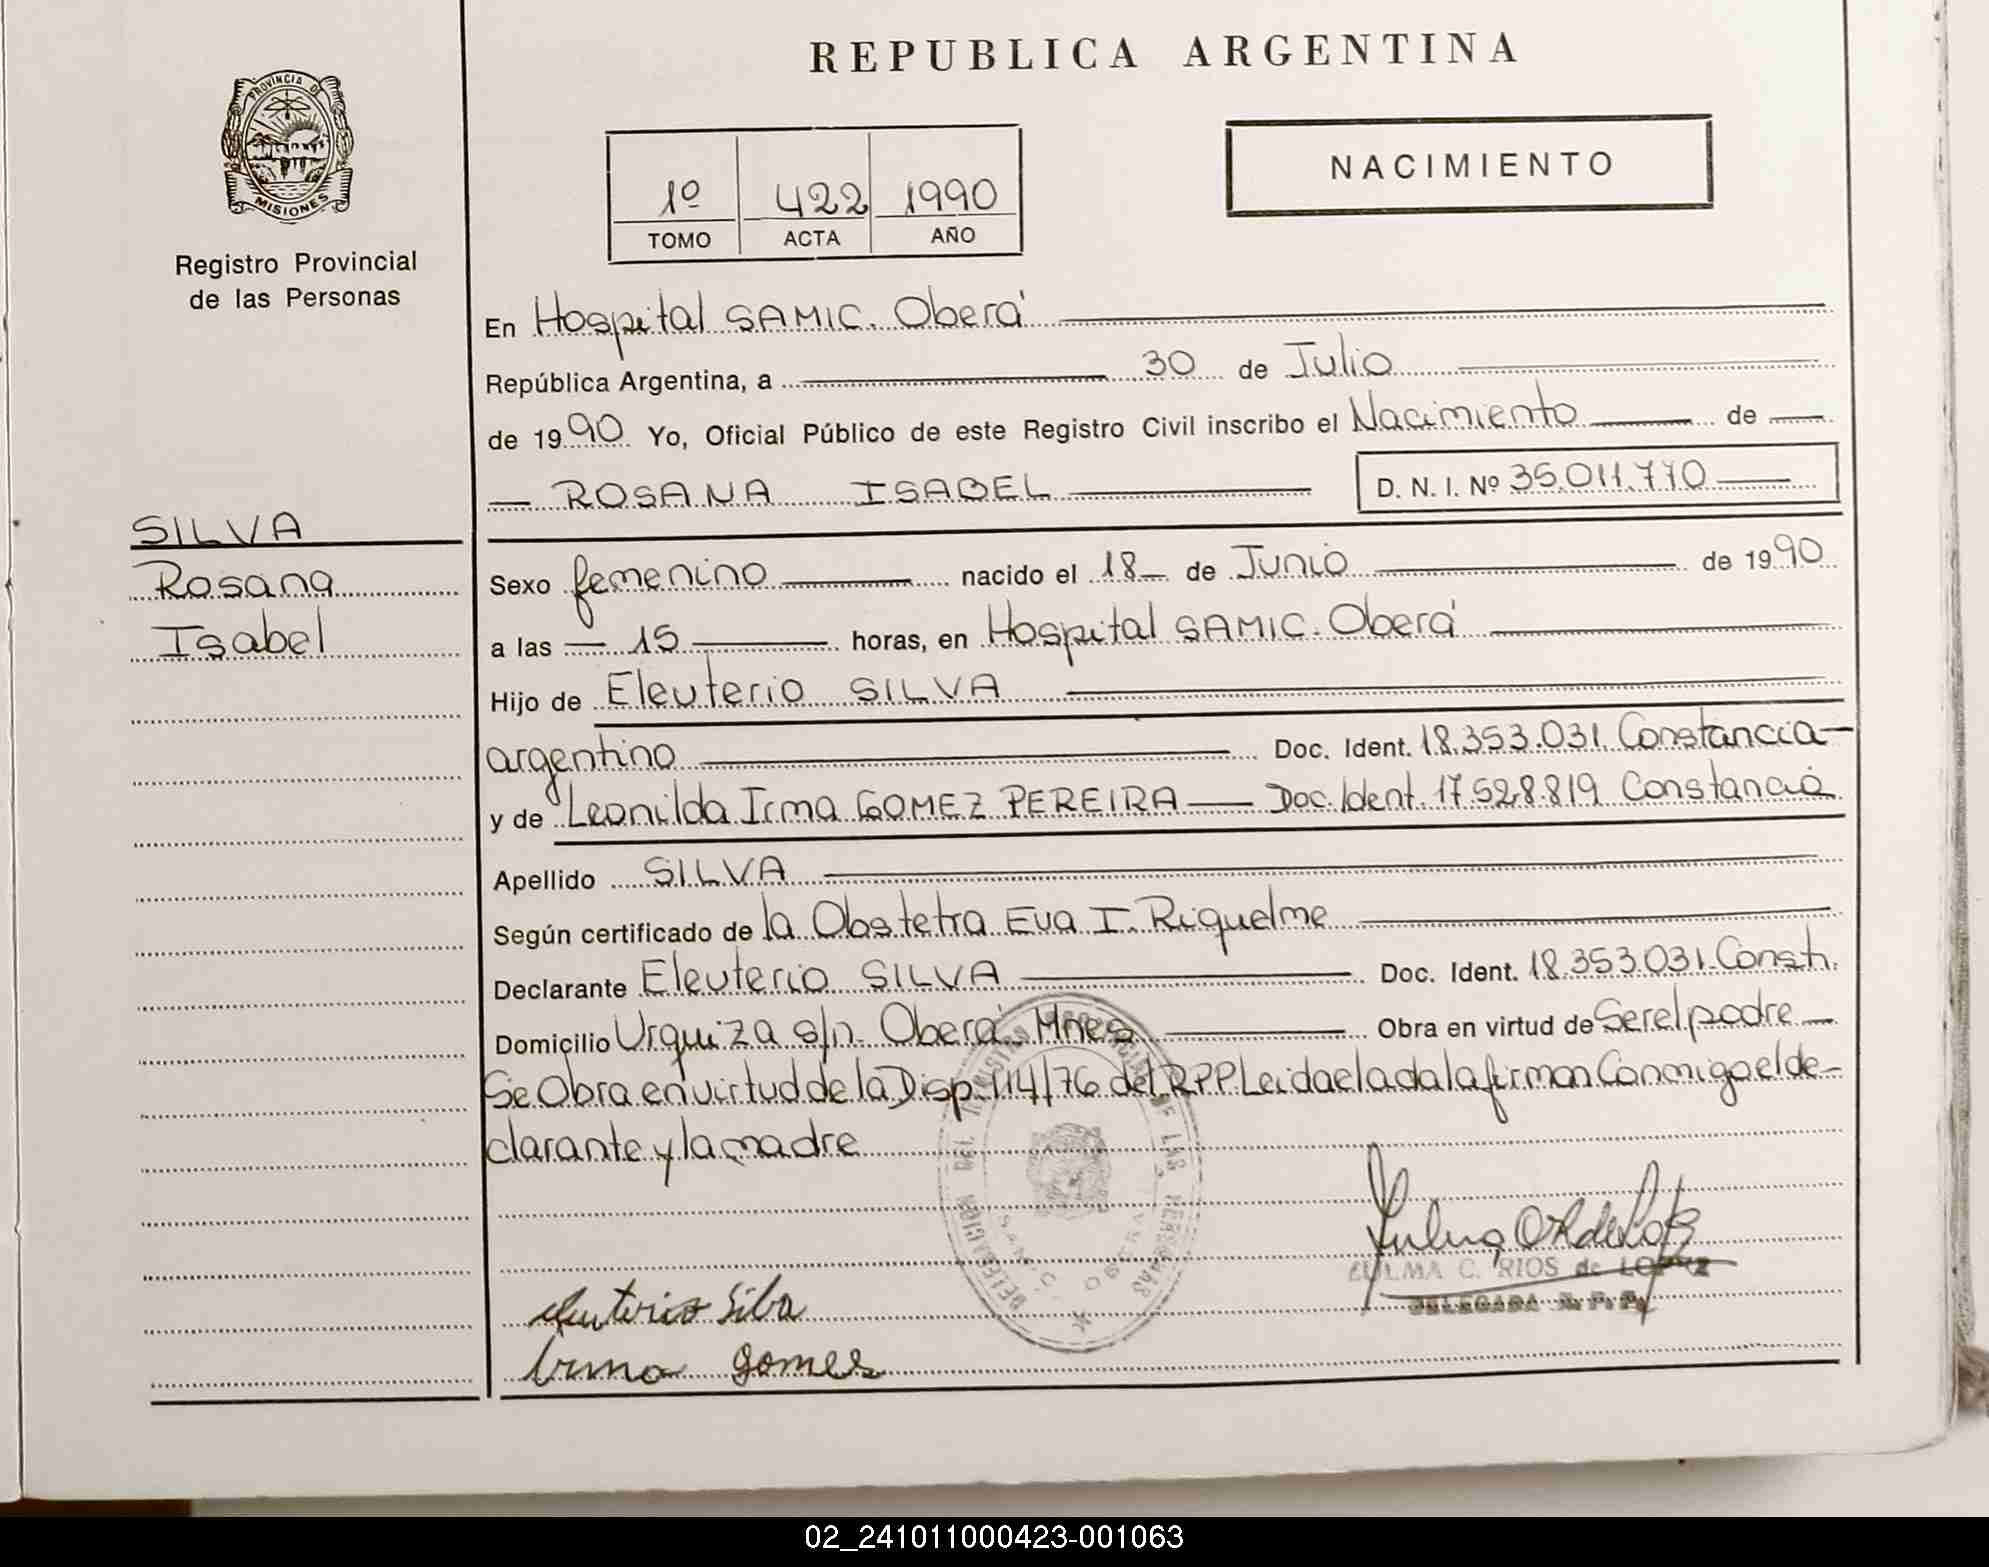 REPUBLICA ARGENTINA
PROVINCIA DE
MISIONES
Registro Provincial
de las Personas
NACIMIENTO
1º 422 1990
TOMO ACTA AÑO
En Hospital SAMIC. Oberá
República Argentina, a 30 de Julio
de 1990 Yo, Oficial Público de este Registro Civil inscribo el Nacimiento de
ROSANA ISABEL D. N. I. Nº 35.011.770
SILVA
Rosana
Isabel
Sexo femenino nacido el 18 de Junio de 1990
a las 15 horas, en Hospital SAMIC. Oberá
Hijo de Eleuterio SILVA
argentino Doc. Ident. 18.353.031 Constancia
y de Leonilda Irma GOMEZ PEREIRA Doc. Ident. 17.528.819 Constancia
Apellido SILVA
Según certificado de la Obstetra Eva I. Riquelme
Declarante Eleuterio SILVA Doc. Ident. 18.353.031 Const.
Domicilio Urquiza s/n. Oberá Mnes Obra en virtud de Ser el padre
Se Obra en virtud de la Disp. 114/76 del RPP. Leida el acta la firman Conmigo el de-
clarante y la madre
DELEGACION DEL REGISTRO PROVINCIAL DE LAS PERSONAS
ZULMA C. RIOS de LOPEZ
DELEGADA R. P. P.
eleuterio Silba
Irma gomes
02_241011000423-001063